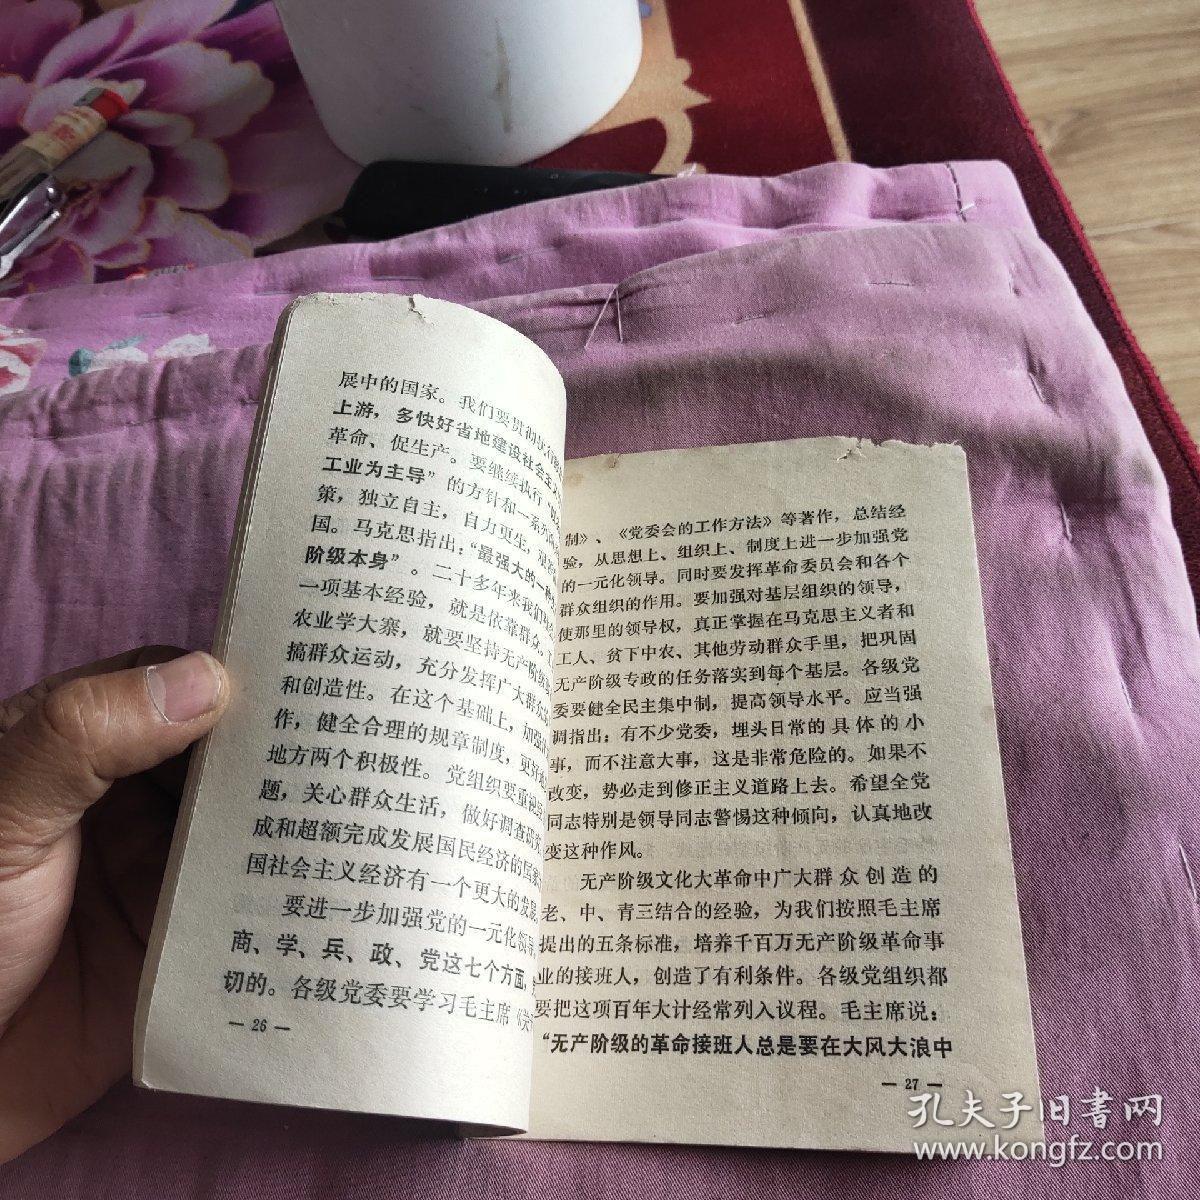 展中的国家。我们要贯彻执行
上游，多快好省地建设社会主义
革命、促生产。要继续执行
工业为主导”的方针和一系列
策，独立自主，自力更生，
国。马克思指出：“最强大的一种
阶级本身”。二十多年来我们
一项基本经验，就是依靠群众。
农业学大寨，就要坚持无产阶级
搞群众运动，充分发挥广大群众
和创造性。在这个基础上，加强
作，健全合理的规章制度，更好
地方两个积极性。党组织要重视
题，关心群众生活，做好调查研究
成和超额完成发展国民经济的国家
国社会主义经济有一个更大的发展。
要进一步加强党的一元化领导。
商、学、兵、政、党这七个方面，
切的。各级党委要学习毛主席《关
— 26 —
制》、《党委会的工作方法》等著作，总结经
验，从思想上、组织上、制度上进一步加强党
的一元化领导。同时要发挥革命委员会和各个
群众组织的作用。要加强对基层组织的领导，
使那里的领导权，真正掌握在马克思主义者和
工人、贫下中农、其他劳动群众手里，把巩固
无产阶级专政的任务落实到每个基层。各级党
委要健全民主集中制，提高领导水平。应当强
调指出：有不少党委，埋头日常的具体的小
事，而不注意大事，这是非常危险的。如果不
改变，势必走到修正主义道路上去。希望全党
同志特别是领导同志警惕这种倾向，认真地改
变这种作风。
无产阶级文化大革命中广大群众创造的
老、中、青三结合的经验，为我们按照毛主席
提出的五条标准，培养千百万无产阶级革命事
业的接班人，创造了有利条件。各级党组织都
要把这项百年大计经常列入议程。毛主席说：
“无产阶级的革命接班人总是要在大风大浪中
— 27 —
孔夫子旧书网
www.kongfz.com